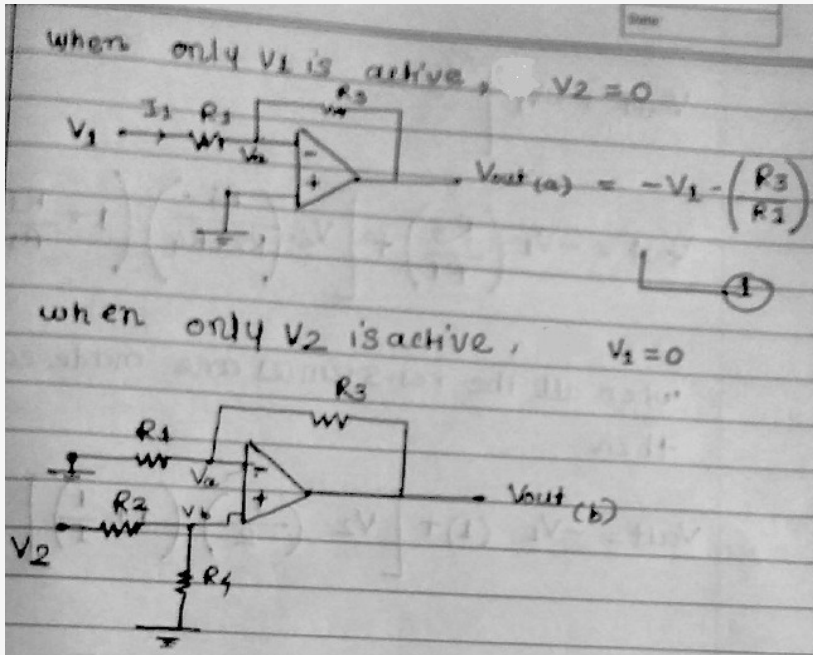 when only V1 is active, V2 = 0
R3
I1 R1
V1 Va
- +
Vout (a) = -V1 - (R3/R1)
1
when only V2 is active, V1 = 0
R3
R1
Va - +
R2 Vb
V2
Vout (b)
R4